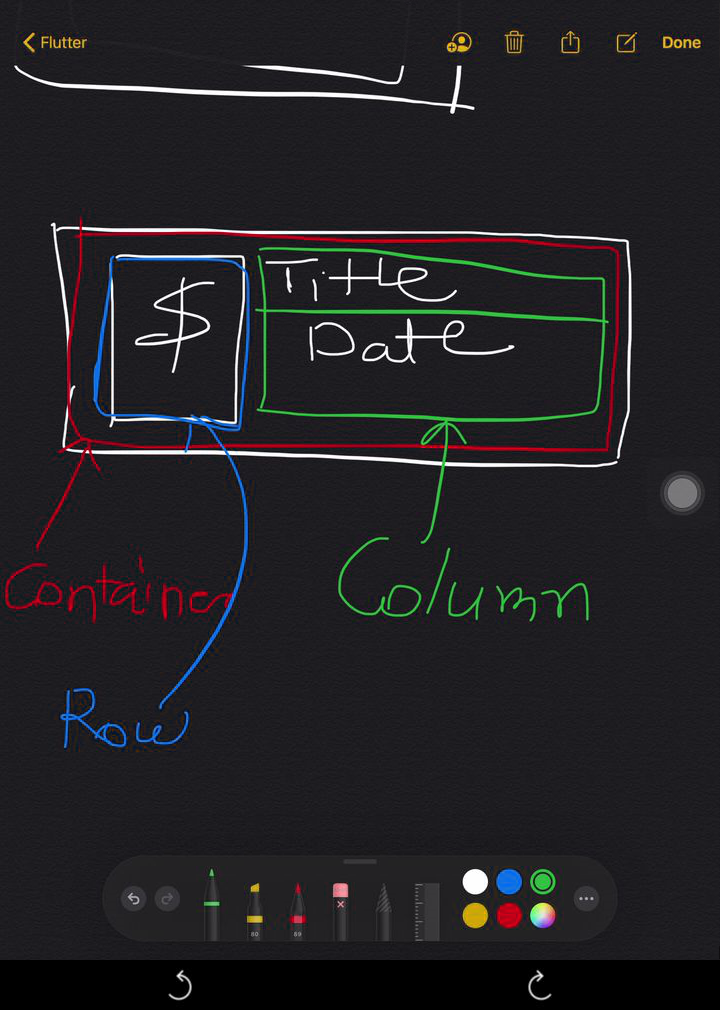 Flutter
Done
$
Title
Date
Container
Column
Row
80
69